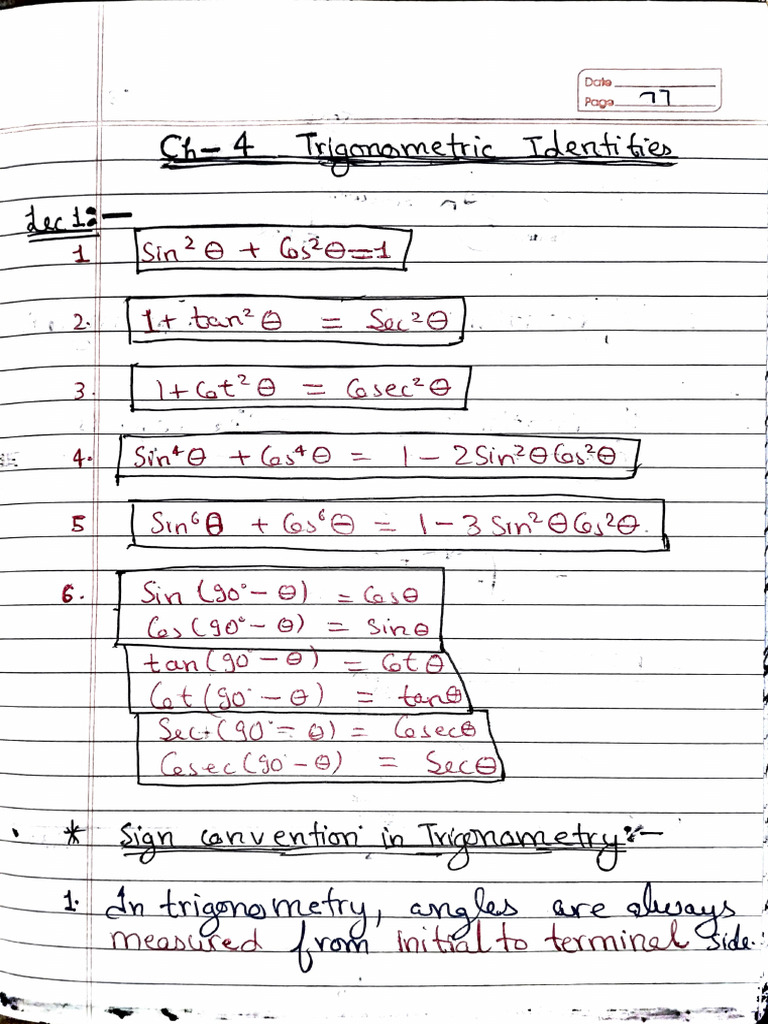 Date
Page 77
Ch-4 Trigonometric Identities
Lec 1:-
1 Sin²θ + Cos²θ=1
2. 1+ tan²θ = Sec²θ
3. 1+Cot²θ = Cosec²θ
4. Sin⁴θ + Cos⁴θ = 1 - 2Sin²θCos²θ
5 Sin⁶θ + Cos⁶θ = 1-3 Sin²θCos²θ.
6. Sin (90°-θ) = Cosθ
Cos(90°-θ) = sinθ
tan(90°-θ) = Cotθ
Cot(90°-θ) = tanθ
Sec(90°-θ) = Cosecθ
Cosec(90°-θ) = Secθ
* Sign convention in Trigonometry:-
1. In trigonometry, angles are always
measured from initial to terminal side.